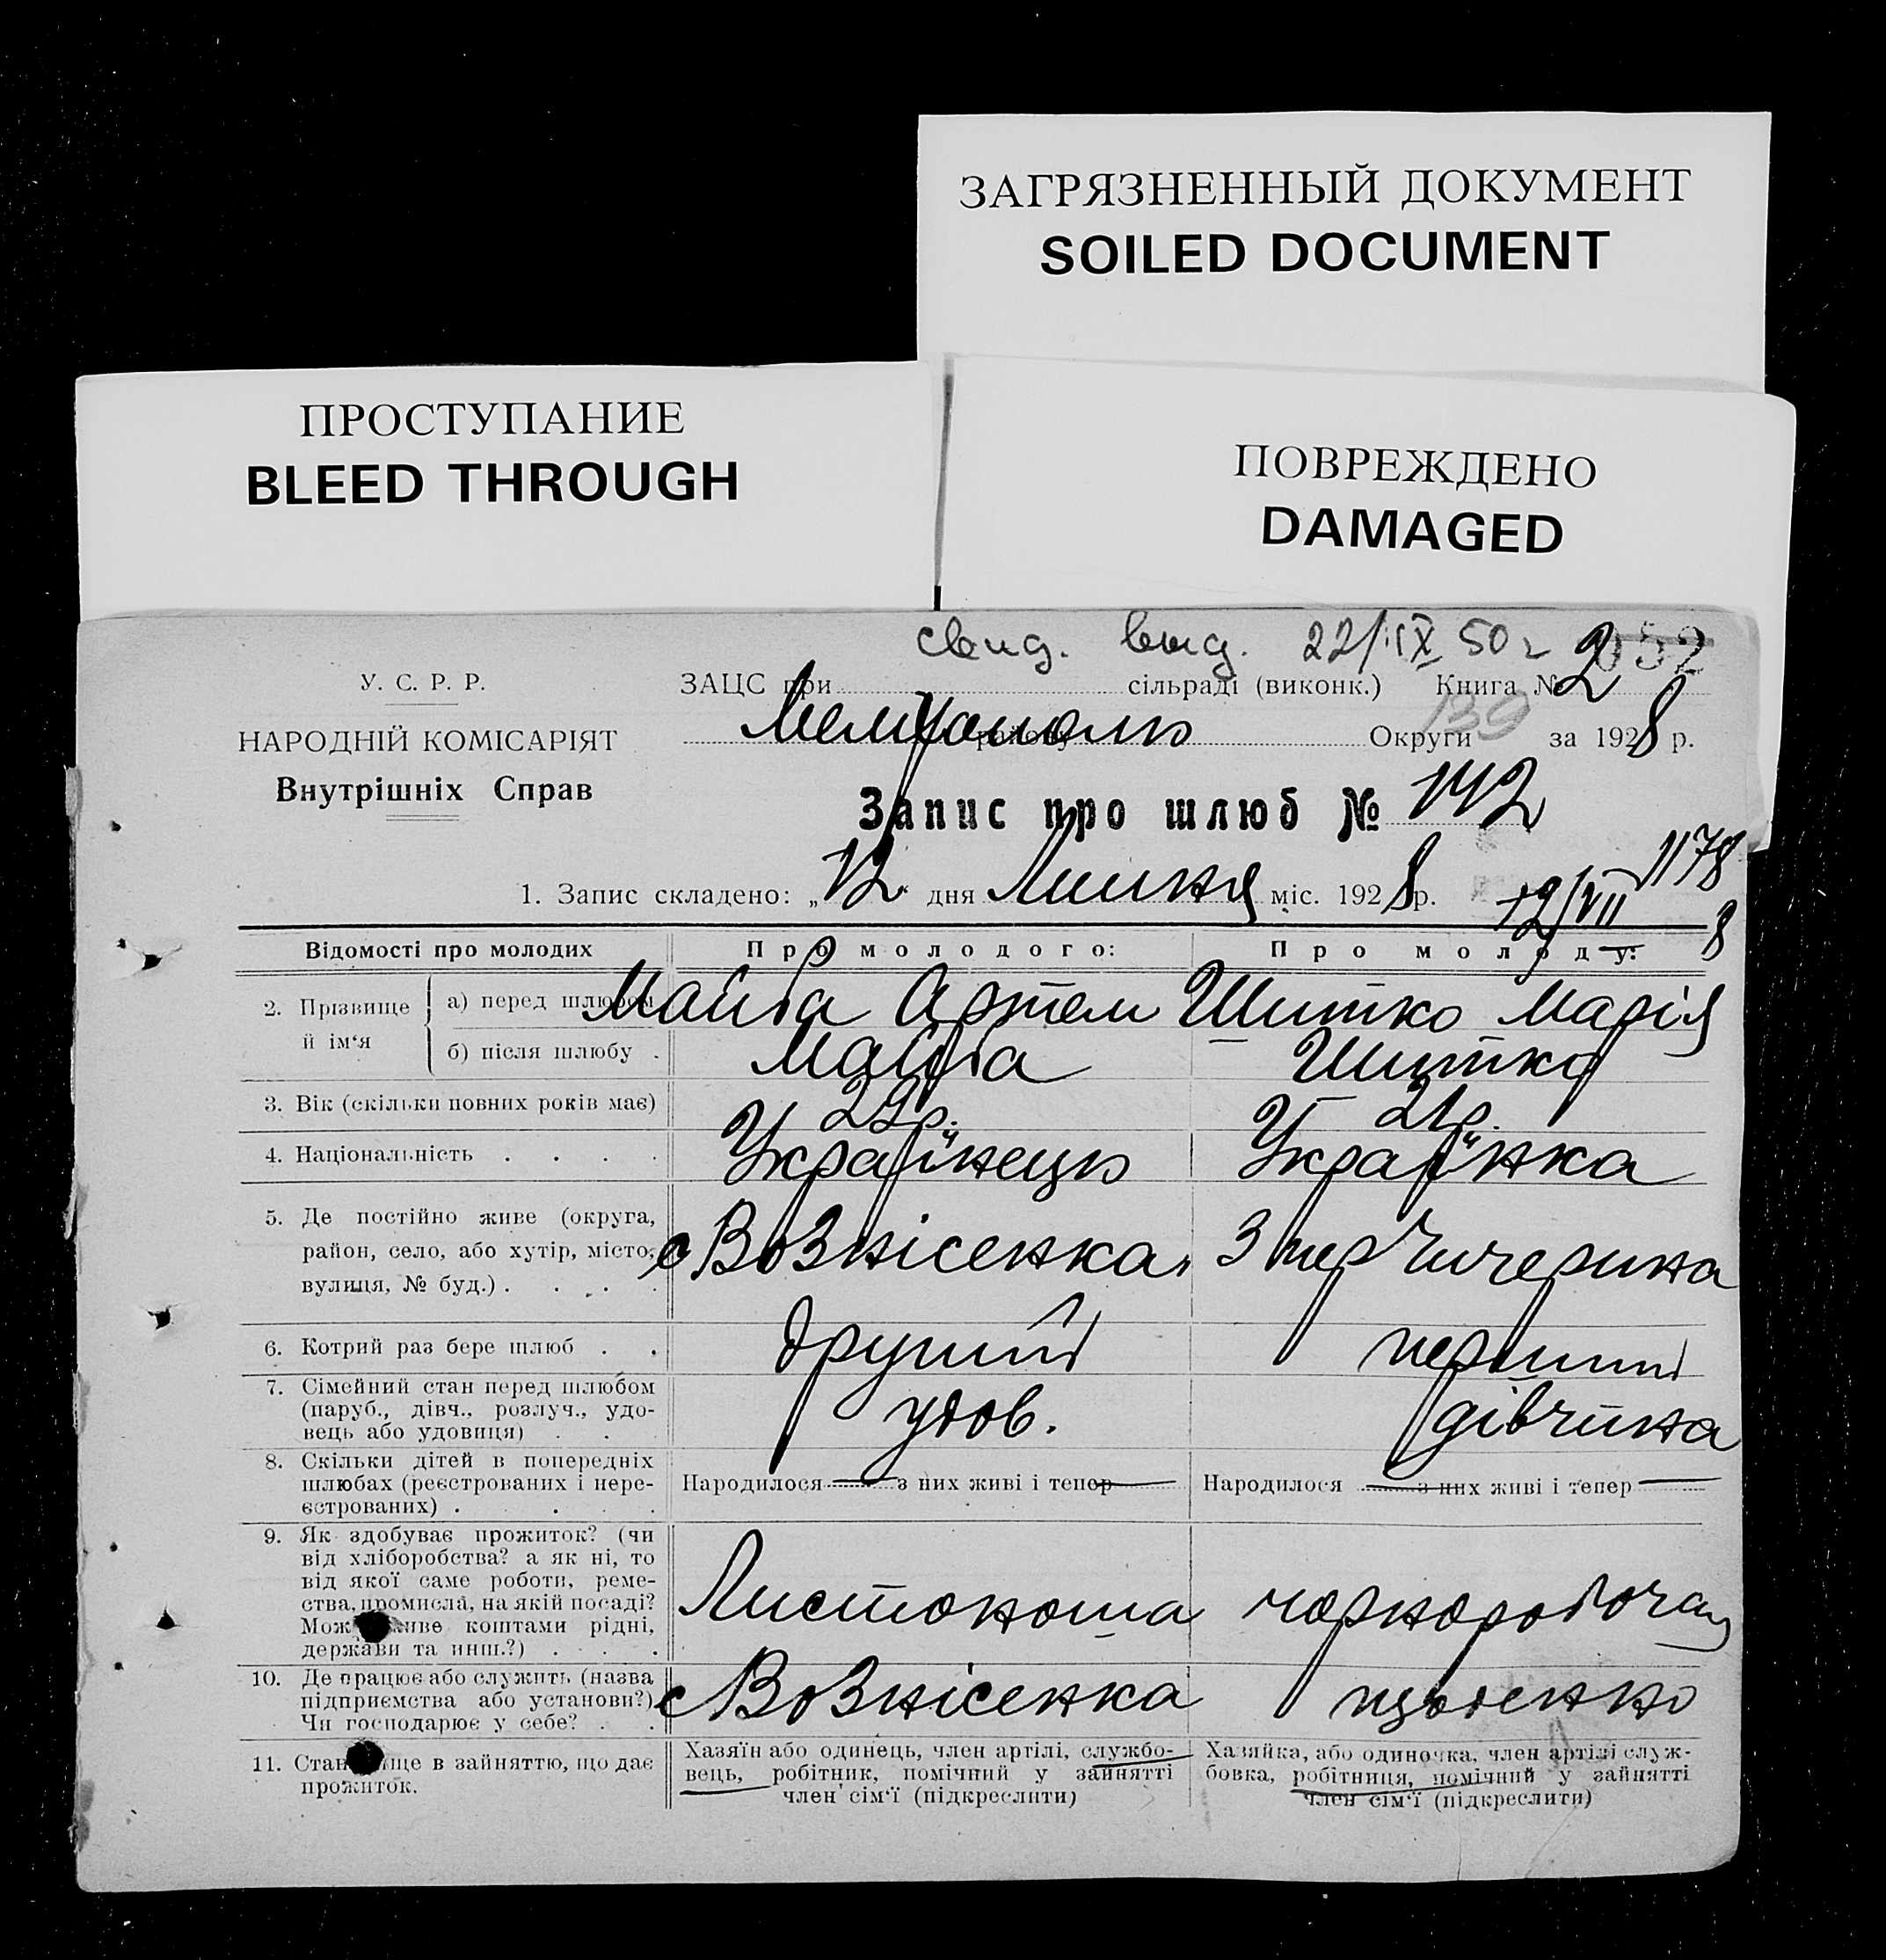 ЗАГРЯЗНЕННЫЙ ДОКУМЕНТ
SOILED DOCUMENT
ПРОСТУПАНИЕ
BLEED THROUGH
ПОВРЕЖДЕНО
DAMAGED
свид. выд. 22/IX 50 г 052
У. С. Р. Р.
ЗАЦС при сільраді (виконк.) Книга № 2
НАРОДНІЙ КОМІСАРІЯТ
Мелітополь району Округи 139 за 1928 р.
Внутрішніх Справ
Запис про шлюб № 142
1178
1. Запис складено: „12" дня Липня міс. 1928 р. 12/VII 8
Відомості про молодих Про молодого: Про молоду:
2. Прізвище й ім‘я
а) перед шлюбом Майба Артем Шитко Марія
б) після шлюбу . Майба Шитко
3. Вік (скільки повних років має) 29р. 21р.
4. Національність . . . . Українець Українка
5. Де постійно живе (округа,
район, село, або хутір, місто,
вулиця, № буд.) . . . . с Вознісенка, 3 пер Чичерина
6. Котрий раз бере шлюб . . другий перший
7. Сімейний стан перед шлюбом
(паруб., дівч., розлуч., удо-
вець або удовиця) . . удов. дівчина
8. Скільки дітей в попередніх
шлюбах (реєстрованих і нере-
єстрованих) . . . . Народилося — з них живі і тепер — Народилося — з них живі і тепер —
9. Як здобуває прожиток? (чи
від хліборобства? а як ні, то
від якої саме роботи, реме-
ства, промисла, на якій посаді?
коштами рідні,
держави та инш.?) . . . Листоноша чорноробоча
10. Де працює або служить (назва
підприємства або установи?)
Чи господарює у себе? . . с Вознісенка щоденно
11. в зайняттю, що дає
прожиток.
Хазяїн або одинець, член артілі, службо-
вець, робітник, помічний у зайнятті
член сім‘ї (підкреслити)
Хазяйка, або одиночка, член артілі служ-
бовка, робітниця, помічний у зайнятті
член сім‘ї (підкреслити)